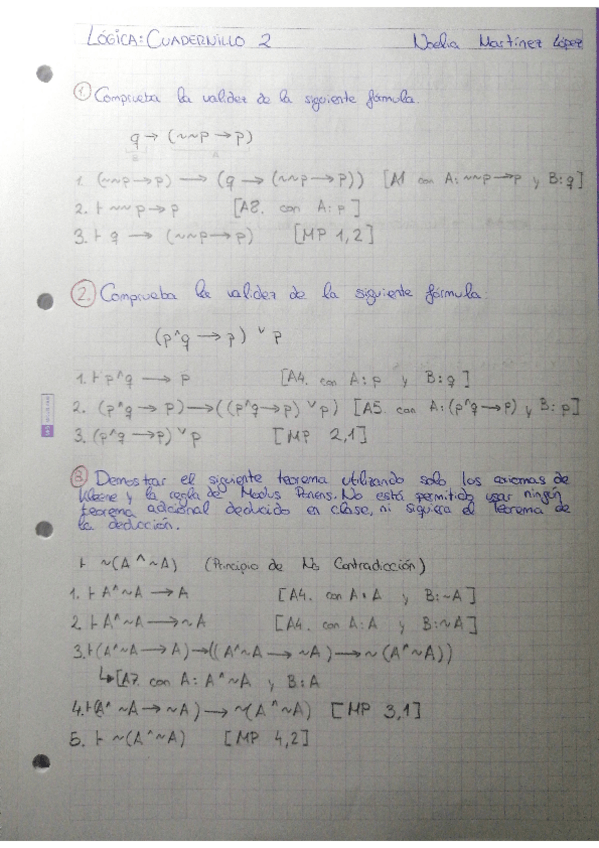 LÓGICA: CUADERNILLO 2 Noelia Martínez López
1. Comprueba la validez de la siguiente fórmula.
q → (~~p → p)
B A
1. (~~p → p) → (q → (~~p → p)) [A1 con A: ~~p → p y B: q]
2. ⊢ ~~p → p [A8. con A: p]
3. ⊢ q → (~~p → p) [MP 1,2]
2. Comprueba la validez de la siguiente fórmula
(p^q → p) ˅ p
1. ⊢ p^q → p [A4. con A: p y B: q]
2. (p^q → p) → ((p^q → p) ˅ p) [A5. con A: (p^q → p) y B: p]
3. (p^q → p) ˅ p [MP 2,1]
3 Demostrar el siguiente teorema utilizando solo los axiomas de
Kleene y la regla de Modus Ponens. No está permitido usar ningún
teorema adicional deducido en clase, ni siquiera el Teorema de
la deducción.
⊢ ~(A ^ ~A) (Principio de No Contradicción)
1. ⊢ A^~A → A [A4. con A: A y B: ~A]
2. ⊢ A^~A → ~A [A4. con A: A y B: ~A]
3. ⊢ (A^~A → A) → ((A^~A → ~A) → ~(A^~A))
↳ [A7. con A: A^~A y B: A
4. ⊢ (A^~A → ~A) → ~(A^~A) [MP 3,1]
5. ⊢ ~(A^~A) [MP 4,2]